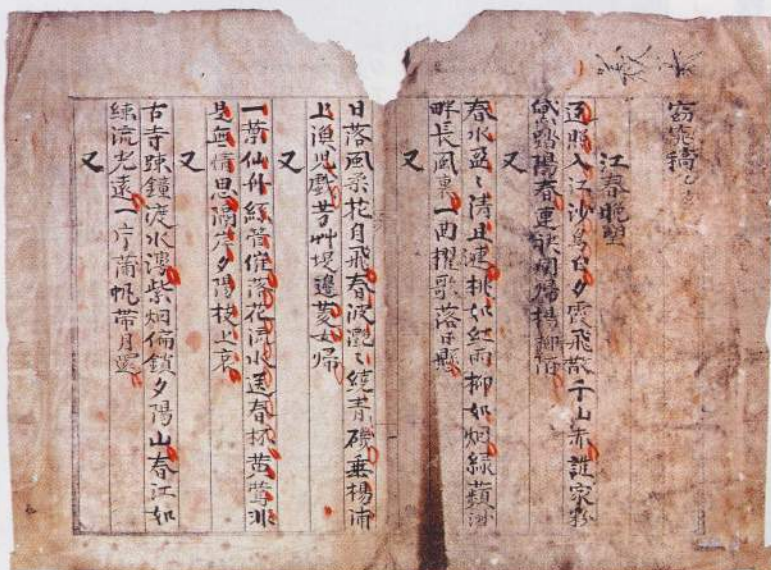 稿
江春晚望
返照入江沙鳥白夕霞飛散千山赤誰家粉
黛踏陽春連袂閒歸楊柳陌
又
春水盈々清且漣桃如紅雨柳如烟綠蘋洲
畔長風裏一曲擢歌落日懸
又
日落風柔花自飛春波灩々繞青磯垂楊浦
上漁児戲芳艸堤邊菱女歸
又
一葉仙舟絲管催落花流水送春杯黃鶯非
是無情思隔岸夕陽枝上哀
又
古寺踈鐘渡水灣紫烟偏鎖夕陽山春江如
練流光遠一片蒲帆帶月還